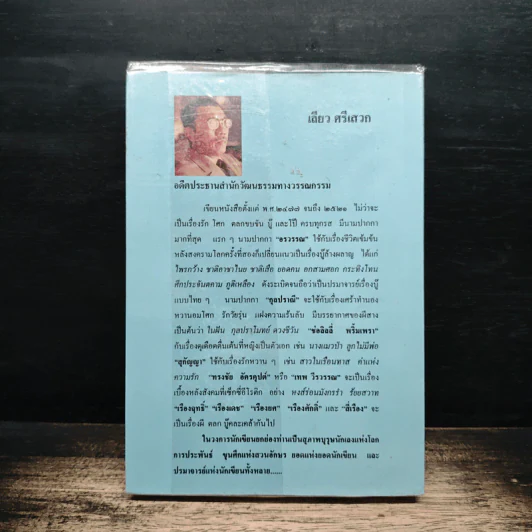 เลียว ศรีเสวก
อดีตประธานสำนักวัฒนธรรมทางวรรณกรรม
เขียนหนังสือตั้งแต่ พ.ศ.๒๔๗๗ จนถึง ๒๕๒๑ ไม่ว่าจะ
เป็นเรื่องรัก โศก ตลกขบขัน บู๊ และโป๊ ครบทุกรส มีนามปากกา
มากที่สุด แรก ๆ นามปากกา "อรวรรณ" ใช้กับเรื่องชีวิตเข้มข้น
หลังสงครามโลกครั้งที่สองก็เปลี่ยนแนวเป็นเรื่องบู๊ล้างผลาญ ได้แก่
ไพรกว้าง ชาติคาซาโนย ชาติเสือ ยอดคน อกสามศอก กระทิงโทน
ศึกประจันตคาม ภูติเหลือง ดังระเบิดจนถือว่าเป็นปรมาจารย์เรื่องบู๊
แบบไทย ๆ นามปากกา "กุลปราณี" จะใช้กับเรื่องเศร้าทำนอง
หวานอมโศก รักวัยรุ่น แฝงความเร้นลับ มีบรรยากาศของผีสาง
เป็นต้นว่า ในฝัน กุลปราโมทย์ ดวงชีวัน "ช่อลิลลี่ พริ้มเพรา"
กับเรื่องดุเดือดตื่นเต้นที่หญิงเป็นตัวเอก เช่น นางแมวป่า ลูกไม่มีพ่อ
"สุกัญญา" ใช้กับเรื่องรักหวาน ๆ เช่น สาวในเรือนทาส ค่าแห่ง
ความรัก "ทรงชัย อัครคุปต์" หรือ "เทพ วีรวรรณ" จะเป็นเรื่อง
เบื้องหลังสังคมที่เซ็กซี่อีโรติก อย่าง หงส์ร่อนมังกรรำ ร้อยสวาท
"เรืองฤทธิ์" "เรืองเดช" "เรืองยศ" "เรืองศักดิ์" และ "ลี่เรือง" จะ
เป็นเรื่องผี ตลก บู๊คละเคล้ากันไป
ในวงการนักเขียนยกย่องท่านเป็นสุภาพบุรุษนักเลงแห่งโลก
การประพันธ์ ขุนศึกแห่งสวนอักษร ยอดแห่งยอดนักเขียน และ
ปรมาจารย์แห่งนักเขียนทั้งหลาย......